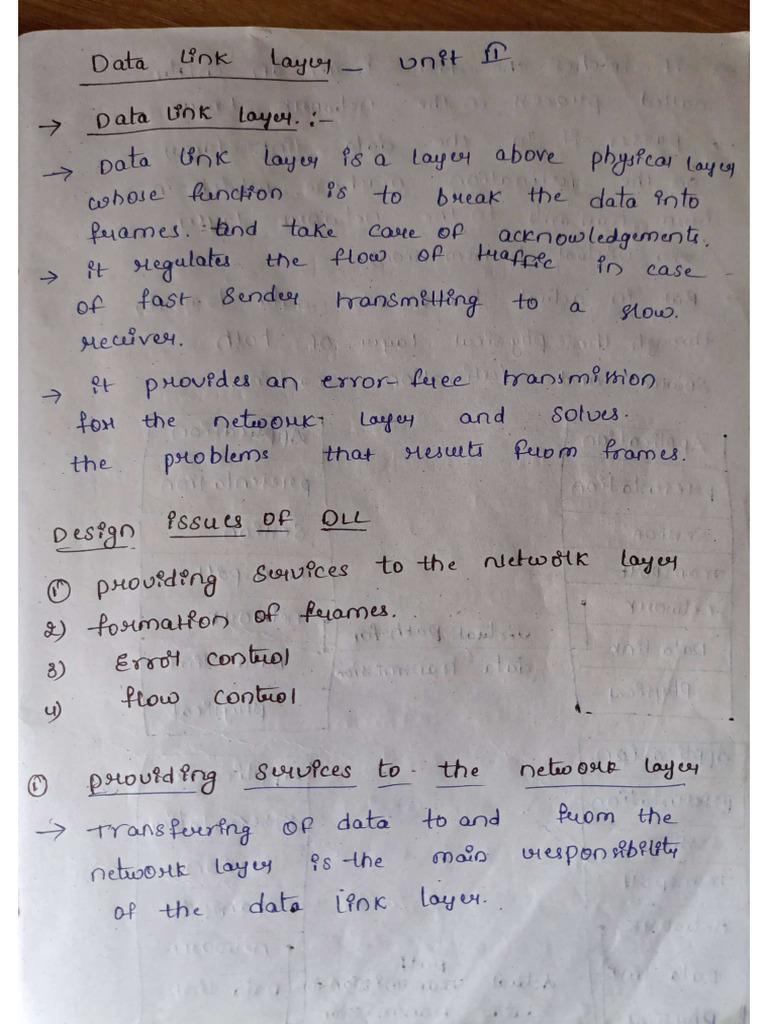 Data Link Layer - Unit II
→ Data Link Layer :-
→ Data Link layer is a layer above physical layer
whose function is to break the data into
frames. and take care of acknowledgements.
→ it regulates the flow of traffic in case
of fast sender transmitting to a slow.
receiver.
→ it provides an error-free transmission
for the network layer and solves.
the problems that results from frames.
Design issues of DLL
① providing services to the Network layer
2) formation of frames.
3) Error control
4) flow control
① providing services to the network layer
→ Transferring of data to and from the
network layer is the main responsibility
of the data link layer.